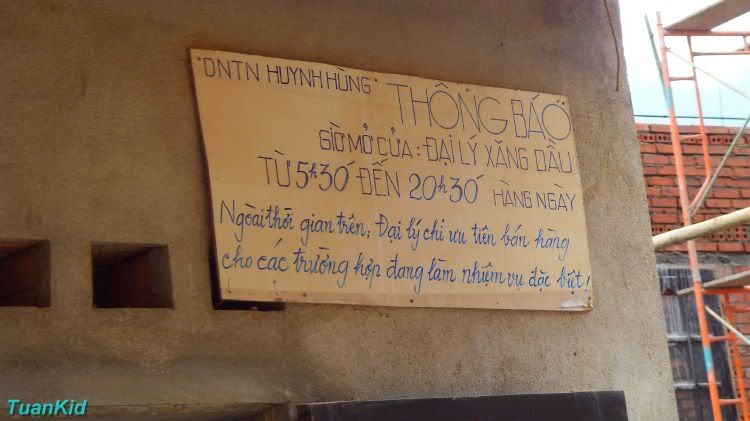 "DNTN HUỲNH HÙNG"
THÔNG BÁO
GIỜ MỞ CỬA : ĐẠI LÝ XĂNG DẦU
TỪ 5h30' ĐẾN 20h30' HÀNG NGÀY
Ngoài thời gian trên; Đại lý chỉ ưu tiên bán hàng
cho các trường hợp đang làm nhiệm vụ đặc biệt!
TuanKid